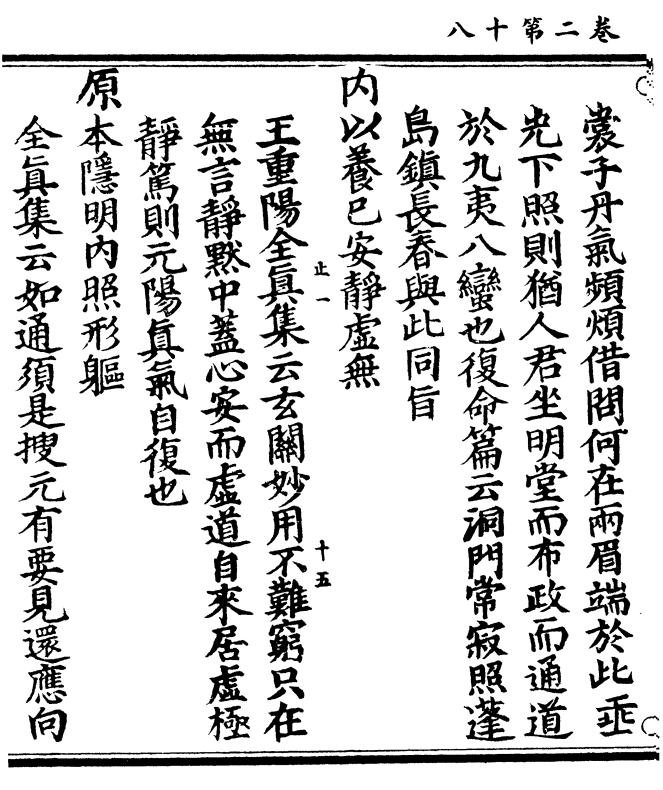 卷二第十八
裳子丹氣頻煩借問何在兩眉端於此垂
光下照則猶人君坐明堂而布政而通道
於九夷八蠻也復命篇云洞門常寂照蓬
島鎮長春與此同旨
内以養巳安靜虛無
王重陽全眞集云玄關妙用不難窮只在
止一
十五
無言靜默中蓋心安而虛道自來居虛極
靜篤則元陽眞氣自復也
原本隱明内照形軀
全眞集云如通須是搜元有要見還應向